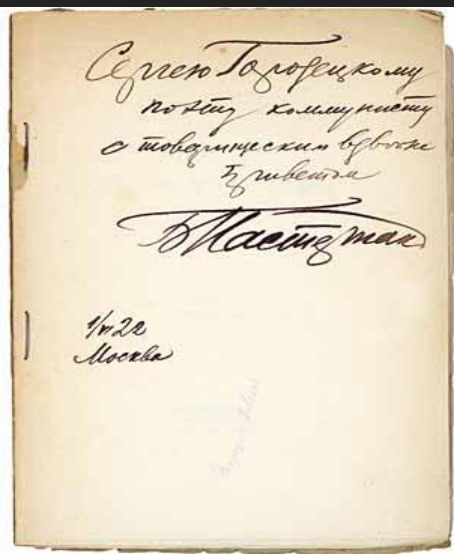 Сергею Городецкому
поэту коммунисту
с товарищеским вдвойне
приветом
Б Пастернак
22
Москва